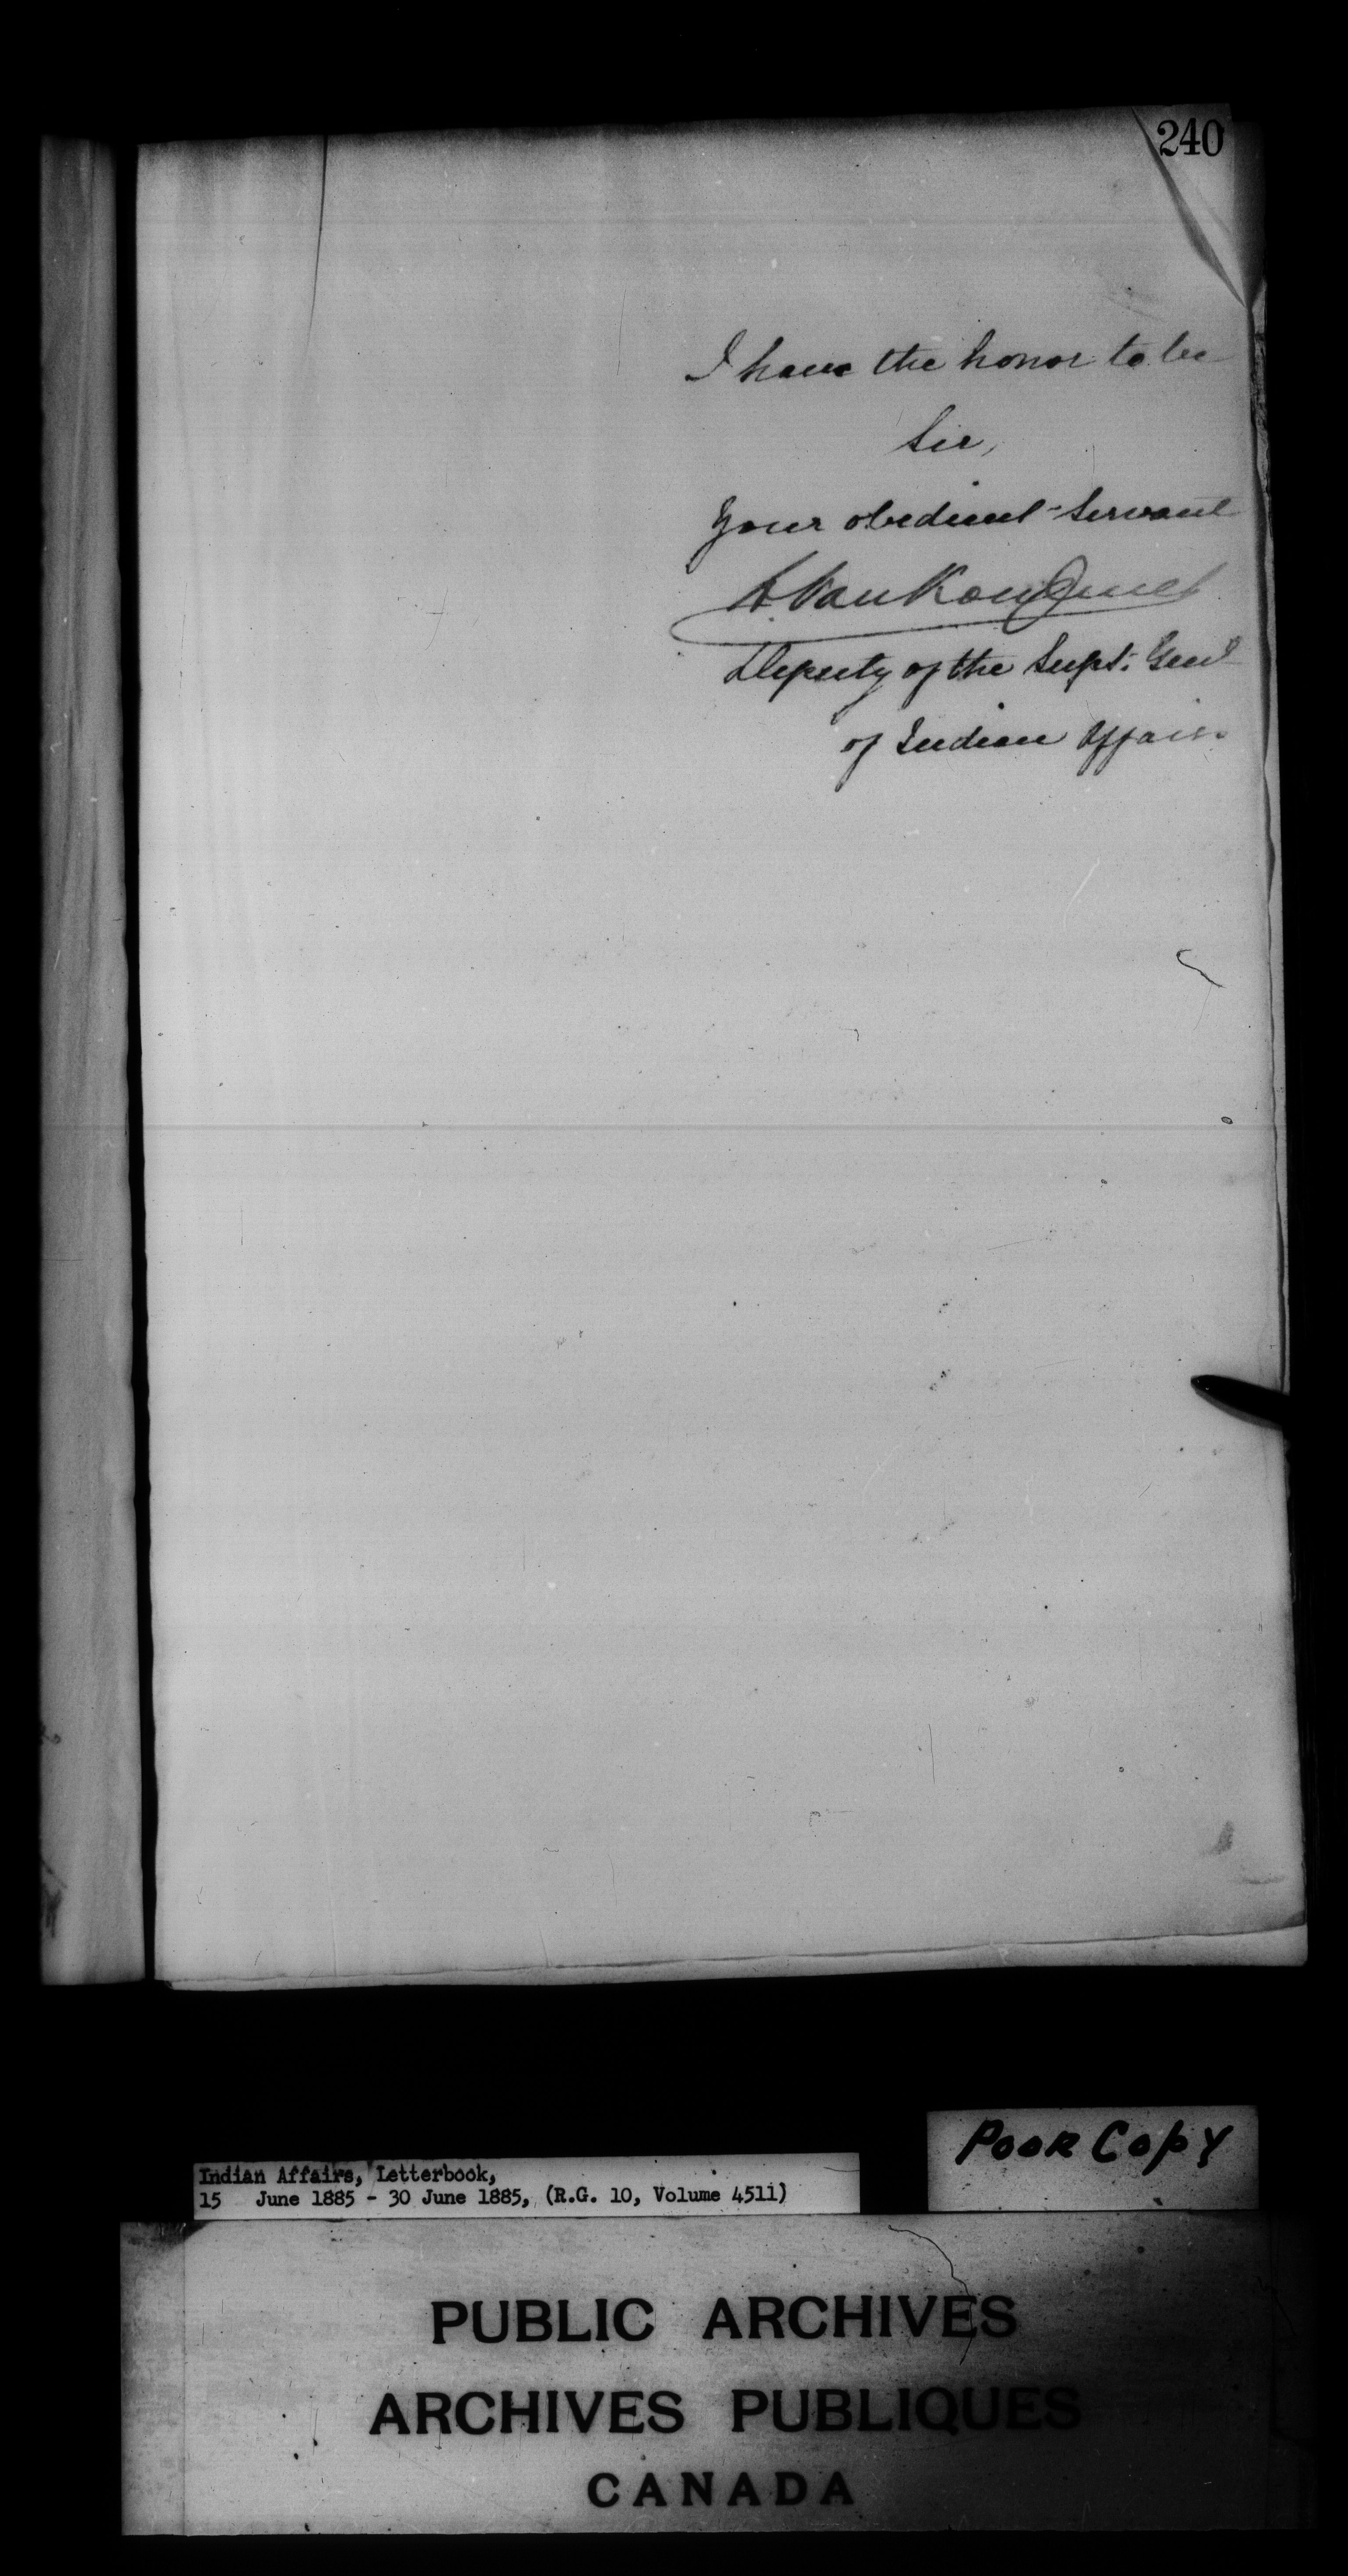 240
I have the honor to be
Sir,
Your obedient Servant
L. VanKoughnet
Deputy of the Supt. Genl
of Indian Affairs
Poor Copy
Indian Affairs, Letterbook,
15 June 1885 - 30 June 1885, (R.G. 10, Volume 4511)
PUBLIC ARCHIVES
ARCHIVES PUBLIQUES
CANADA